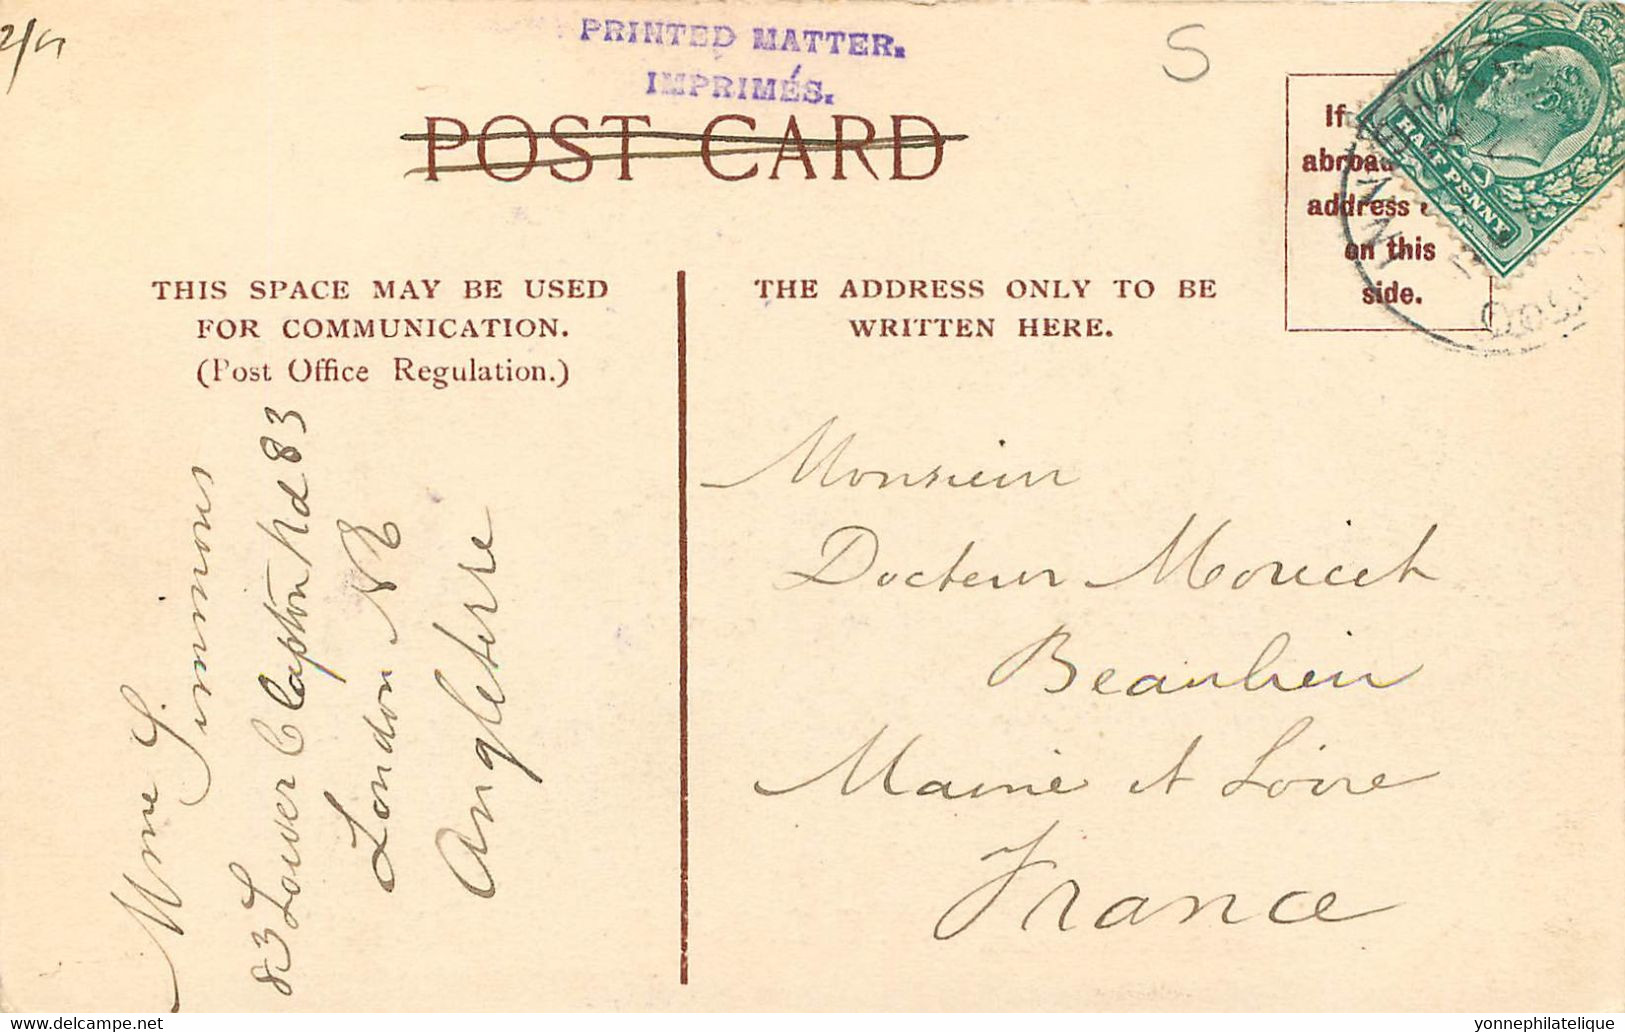 PRINTED MATTER.
IMPRIMÉS.
POST CARD
S
HALF PENNY
If
abroad
address
on this
side.
THIS SPACE MAY BE USED
FOR COMMUNICATION.
(Post Office Regulation.)
THE ADDRESS ONLY TO BE
WRITTEN HERE.
Mme Simmons
83 Lower Clapton Rd 83
London NE
Angleterre
Monsieur
Docteur Moricet
Beaulieu
Maine et Loire
France
www.yonnephilatelique.com